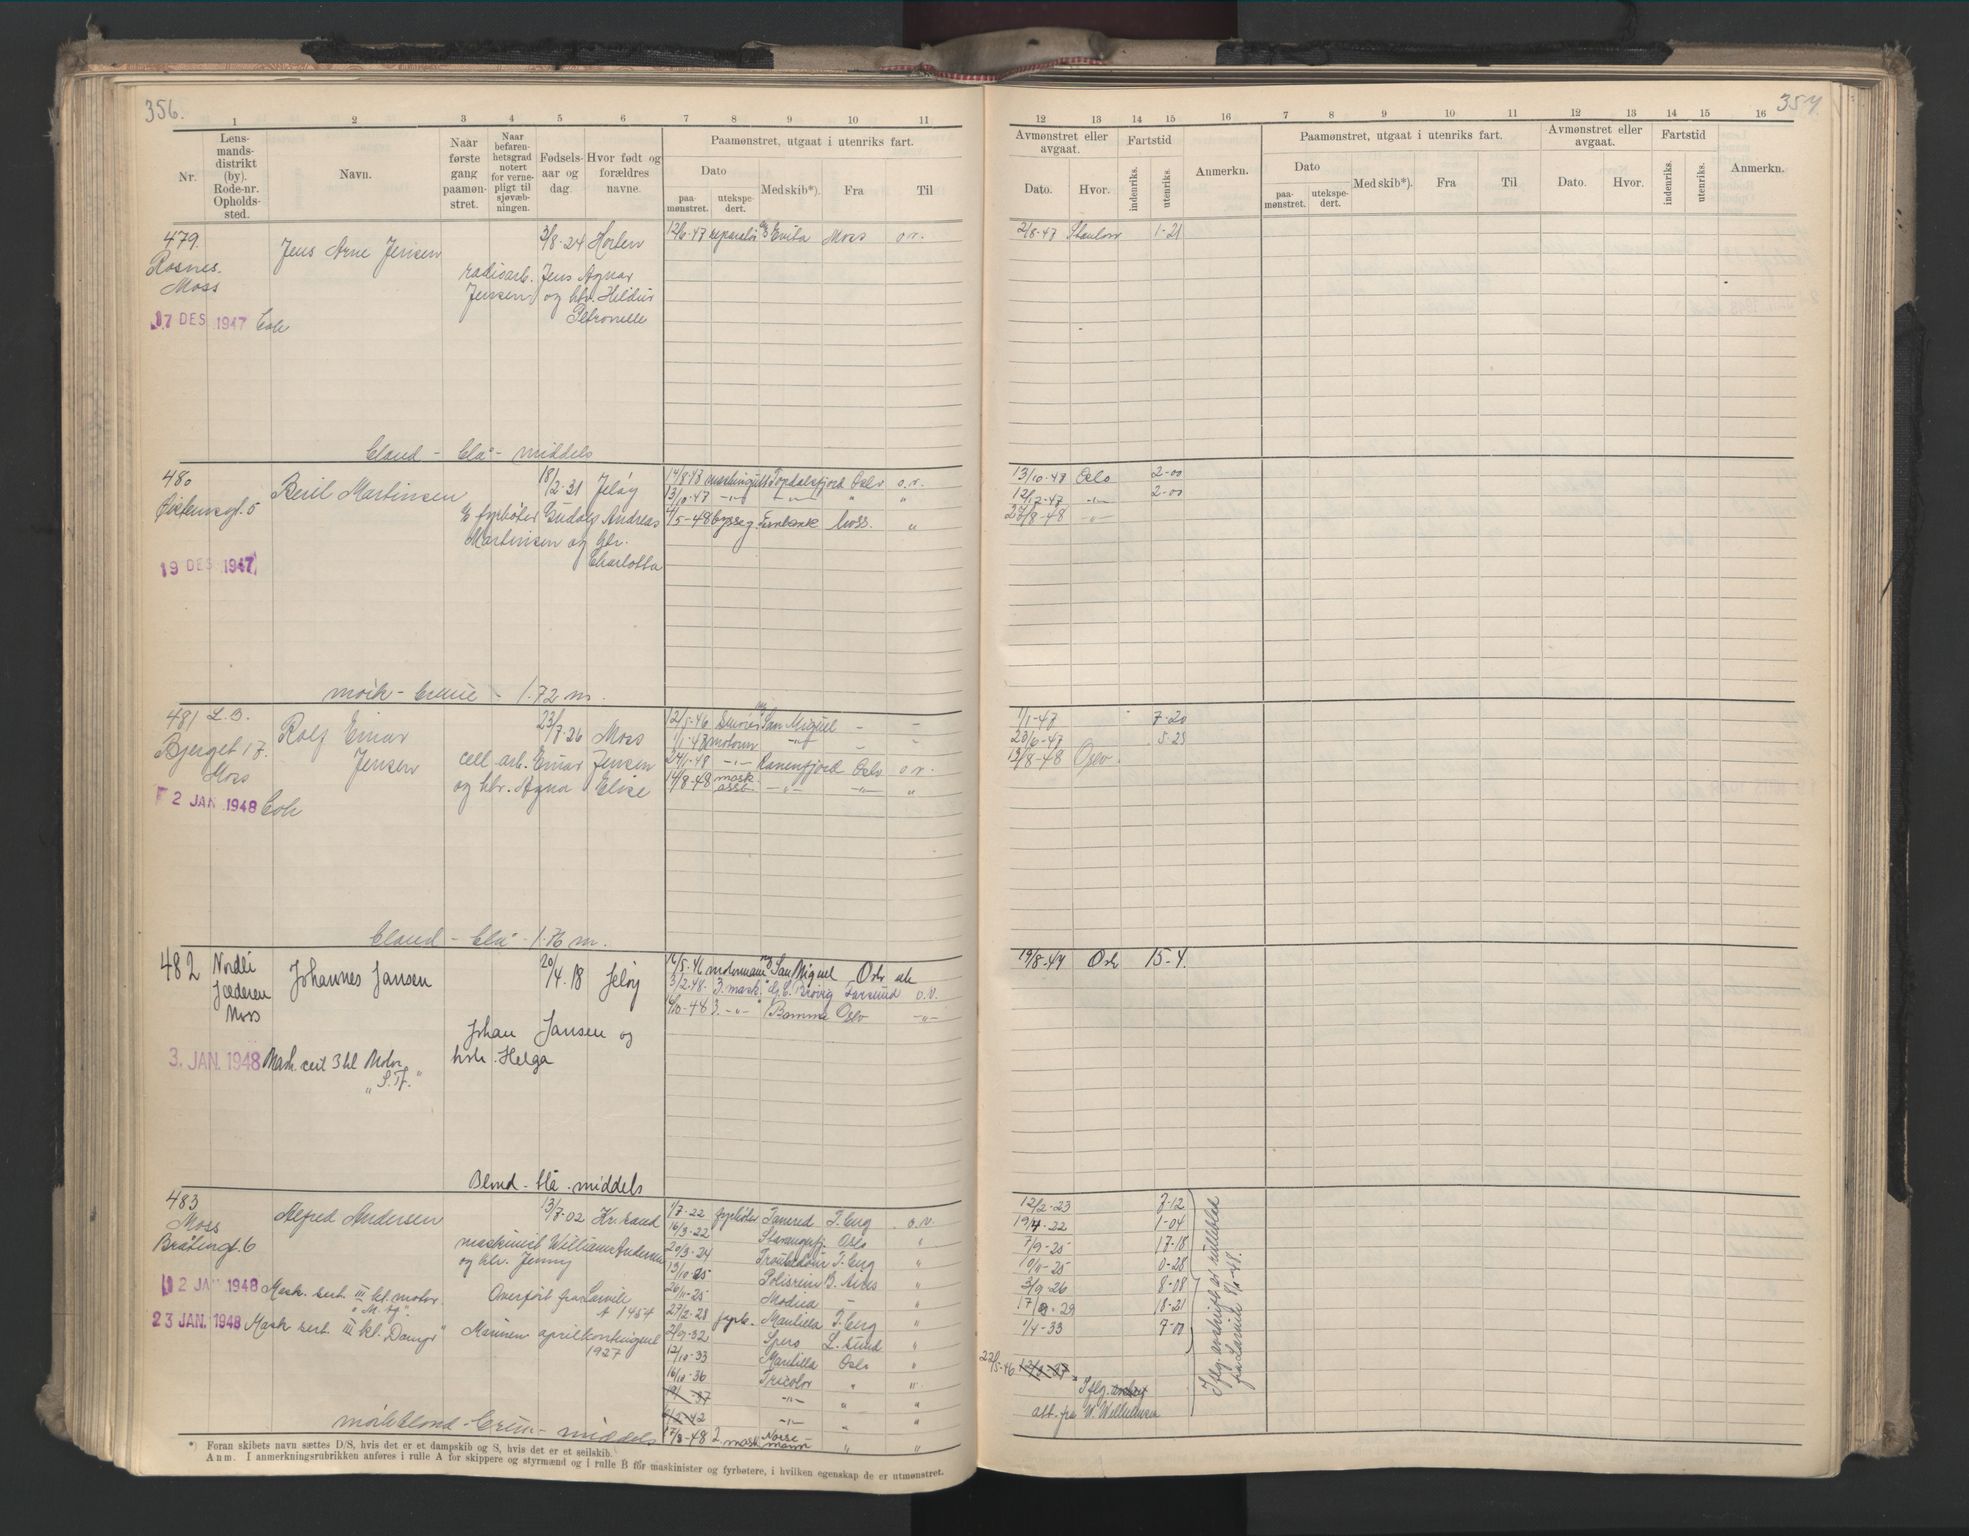 356.
1 2 3 4 5 6 7 8 9 10 11
Nr.
Lens-
mands-
distrikt
(by).
Rode-nr.
Opholds-
sted.
Navn.
Naar
første
gang
paamøn-
stret.
Naar
befaren-
hetsgrad
notert
for verne-
pligt til
sjøvæb-
ningen.
Fødsels-
aar og
dag.
Hvor født og
forældres
navne.
Paamønstret, utgaat i utenriks fart.
Dato
paa-
mønstret.
utekspe-
dert.
Med skib*).
Fra
Til
479.
Rosnes.
Moss
17 DES. 1947
Jens Arne Jensen
3/8-24 Horten
radioarb. Jens Agnar
Jensen og htr. Hildur
Petronelle
12/6-47 reparatør M/S Evita Moss o.v.
Bland - blå - middels
480
18/2-31 Jeløy
19 DES 1947
Beril Martinsen
E fyrbøter Gudolf Andreas
Martinsen og htr.
Charlotta
14/8-47 maskingutt Topdalsfjord Oslo o.v.
13/10-47 -"- -"- " "
4/5-48 Fernbank Moss. "
mørk - brune - 1.72 m.
481 L.B.
Bjerget 17
Moss
2 JAN. 1948
Rolf Einar
Jensen
23/7-26 Moss
cell. arb. Einar Jensen
og htr. Agna Elise
12/5-46 smører M/S San Miguel - -
1/1-47 motorm -"- - -
24/1-48 -"- Ranenfjord Oslo o.v.
14/8-48 mask. asst -"- -"- "
Bland - blå - 1.76 m.
482
Nordli
Jæderen
Moss
3. JAN. 1948
Johannes Jansen
20/4.18 Jeløy
Johan Jansen og
htr. Helga
Mask. cert 3 kl Motor
16/5-46 motormann M/S San Miguel Oslo ute
3/2-48. 3. mask. " G.C. Brøvig Farsund o.v.
3. -"- " Bomma Oslo -"-
Blond - blå - middels
483
Moss
Bråtengt. 6
12 JAN 1948
23 JAN. 1948
Alfred Andersen
13/7-02 Kr.sand
maskinist William Andersen
og htr. Jenny
Mask. sert. III kl. motor.
Mask sert. III kl. Damp"
Overført fra Larvik
A 1454
Marinen aprilkontingent
1927
1/7-22 fyrbøter Tancred T.berg o.v.
16/3-22 Stavangerfj. Oslo "
20/3-24 T.berg "
13/10-25 Polisrein B. Aires "
26/11-25 Modica - "
27/2-28 fyrb. Mantilla T.berg "
2/9-32 Spero L.sund "
12/10-33 Mantilla Oslo "
16/10-36 Tricolor " "
-"- " "
-"- " "
17/3-48 2. mask Norse-
mann " "
mørkblond - brun - middels
*) Foran skibets navn sættes D/S, hvis det er et dampskib og S, hvis det er et seilskib.
Anm. I anmerkningsrubrikken anføres i rulle A for skippere og styrmænd og i rulle B for maskinister og fyrbøtere, i hvilken egenskap de er utmønstret.
357.
12 13 14 15 16 7 8 9 10 11 12 13 14 15 16
Avmønstret eller
avgaat.
Dato. Hvor.
Fartstid
indenriks.
utenriks.
Anmerkn.
Paamønstret, utgaat i utenriks fart.
Dato
paa-
mønstret.
utekspe-
dert.
Med skib*).
Fra
Til
Avmønstret eller
avgaat.
Dato. Hvor.
Fartstid
indenriks.
utenriks.
Anmerkn.
2/8-47 Stanlow 1-21
13/10-47 Oslo 2-00
12/12-47 -"- 2-00
27/8-48 -"-
1/1-47 7-20
20/6-47 5-23
13/8-48 Oslo
19/8-47 Oslo 15-4.
12/2-23 7-12
19/4-22 1-04
7/9-25 17-18
10/11-25 0-28
3/9-26 8-08
17/9-29 18-21
1/4-33 7-00
22/5-46
Iflg.
att. fra W. Wilhelmsen
Iflg. avskrift av rulleblad
fra Larvik 8/1-48.